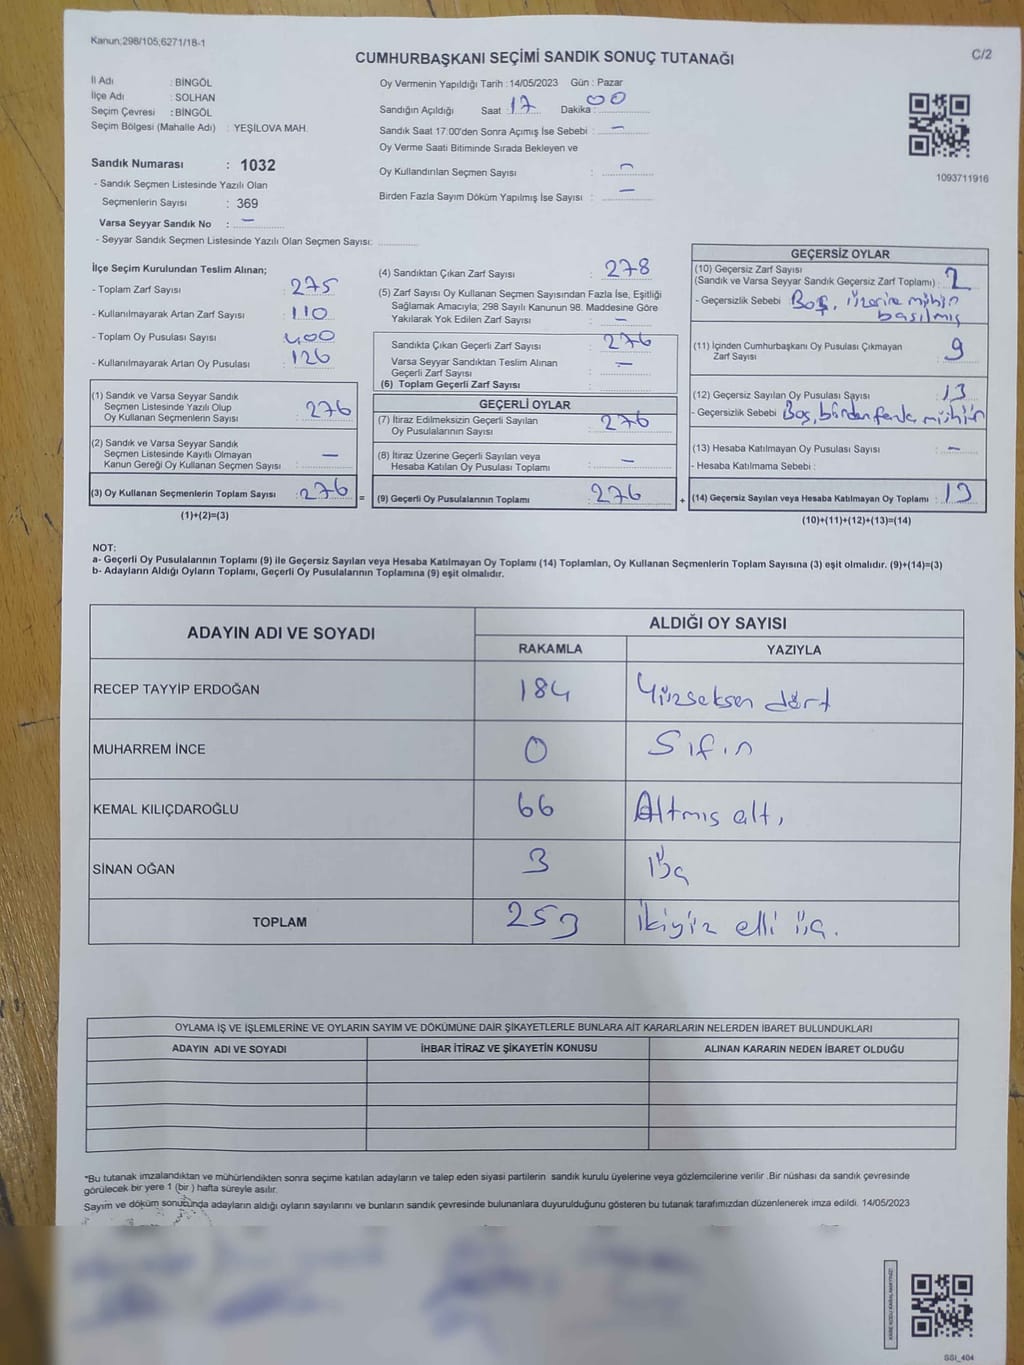 Kanun;298/105;6271/18-1
C/2
CUMHURBAŞKANI SEÇİMİ SANDIK SONUÇ TUTANAĞI
İl Adı : BİNGÖL
İlçe Adı : SOLHAN
Seçim Çevresi : BİNGÖL
Seçim Bölgesi (Mahalle Adı) : YEŞİLOVA MAH.
Sandık Numarası : 1032
- Sandık Seçmen Listesinde Yazılı Olan
Seçmenlerin Sayısı : 369
Varsa Seyyar Sandık No : —
- Seyyar Sandık Seçmen Listesinde Yazılı Olan Seçmen Sayısı:
Oy Vermenin Yapıldığı Tarih : 14/05/2023 Gün : Pazar
Sandığın Açıldığı Saat : 17 Dakika : 00
Sandık Saat 17:00'den Sonra Açımış İse Sebebi : —
Oy Verme Saati Bitiminde Sırada Bekleyen ve
Oy Kullandırılan Seçmen Sayısı : —
Birden Fazla Sayım Döküm Yapılmış İse Sayısı : —
1093711916
İlçe Seçim Kurulundan Teslim Alınan;
- Toplam Zarf Sayısı : 275
- Kullanılmayarak Artan Zarf Sayısı : 110
- Toplam Oy Pusulası Sayısı : 400
- Kullanılmayarak Artan Oy Pusulası : 126
(1) Sandık ve Varsa Seyyar Sandık
Seçmen Listesinde Yazılı Olup
Oy Kullanan Seçmenlerin Sayısı : 276
(2) Sandık ve Varsa Seyyar Sandık
Seçmen Listesinde Kayıtlı Olmayan
Kanun Gereği Oy Kullanan Seçmen Sayısı : —
(3) Oy Kullanan Seçmenlerin Toplam Sayısı : 276 =
(1)+(2)=(3)
(4) Sandıktan Çıkan Zarf Sayısı : 278
(5) Zarf Sayısı Oy Kullanan Seçmen Sayısından Fazla İse, Eşitliği
Sağlamak Amacıyla, 298 Sayılı Kanunun 98. Maddesine Göre
Yakılarak Yok Edilen Zarf Sayısı : —
Sandıkta Çıkan Geçerli Zarf Sayısı : 276
Varsa Seyyar Sandıktan Teslim Alınan
Geçerli Zarf Sayısı : —
(6) Toplam Geçerli Zarf Sayısı :
GEÇERLİ OYLAR
(7) İtiraz Edilmeksizin Geçerli Sayılan
Oy Pusulalarının Sayısı : 276
(8) İtiraz Üzerine Geçerli Sayılan veya
Hesaba Katılan Oy Pusulası Toplamı : —
(9) Geçerli Oy Pusulalarının Toplamı : 276 +
GEÇERSİZ OYLAR
(10) Geçersiz Zarf Sayısı
(Sandık ve Varsa Seyyar Sandık Geçersiz Zarf Toplamı) : 2
- Geçersizlik Sebebi : Boş, üzerine mühür
basılmış
(11) İçinden Cumhurbaşkanı Oy Pusulası Çıkmayan
Zarf Sayısı : 9
(12) Geçersiz Sayılan Oy Pusulası Sayısı : 13
- Geçersizlik Sebebi : Boş, birden fazla mühür
(13) Hesaba Katılmayan Oy Pusulası Sayısı : —
- Hesaba Katılmama Sebebi :
(14) Geçersiz Sayılan veya Hesaba Katılmayan Oy Toplamı : 13
(10)+(11)+(12)+(13)=(14)
NOT:
a- Geçerli Oy Pusulalarının Toplamı (9) ile Geçersiz Sayılan veya Hesaba Katılmayan Oy Toplamı (14) Toplamları, Oy Kullanan Seçmenlerin Toplam Sayısına (3) eşit olmalıdır. (9)+(14)=(3)
b- Adayların Aldığı Oyların Toplamı, Geçerli Oy Pusulalarının Toplamına (9) eşit olmalıdır.
ADAYIN ADI VE SOYADI
ALDIĞI OY SAYISI
RAKAMLA YAZIYLA
RECEP TAYYİP ERDOĞAN 184 Yüzseksen dört
MUHARREM İNCE 0 Sıfır
KEMAL KILIÇDAROĞLU 66 Altmış altı
SİNAN OĞAN 3 Üç
TOPLAM 253 ikiyüz elli üç.
OYLAMA İŞ VE İŞLEMLERİNE VE OYLARIN SAYIM VE DÖKÜMÜNE DAİR ŞİKAYETLERLE BUNLARA AİT KARARLARIN NELERDEN İBARET BULUNDUKLARI
ADAYIN ADI VE SOYADI İHBAR İTİRAZ VE ŞİKAYETİN KONUSU ALINAN KARARIN NEDEN İBARET OLDUĞU
*Bu tutanak imzalandıktan ve mühürlendikten sonra seçime katılan adayların ve talep eden siyasi partilerin sandık kurulu üyelerine veya gözlemcilerine verilir .Bir nüshası da sandık çevresinde
görülecek bir yere 1 (bir ) hafta süreyle asılır.
Sayım ve döküm sonucunda adayların aldığı oyların sayılarını ve bunların sandık çevresinde bulunanlara duyurulduğunu gösteren bu tutanak tarafımızdan düzenlenerek imza edildi. 14/05/2023
SSI_404